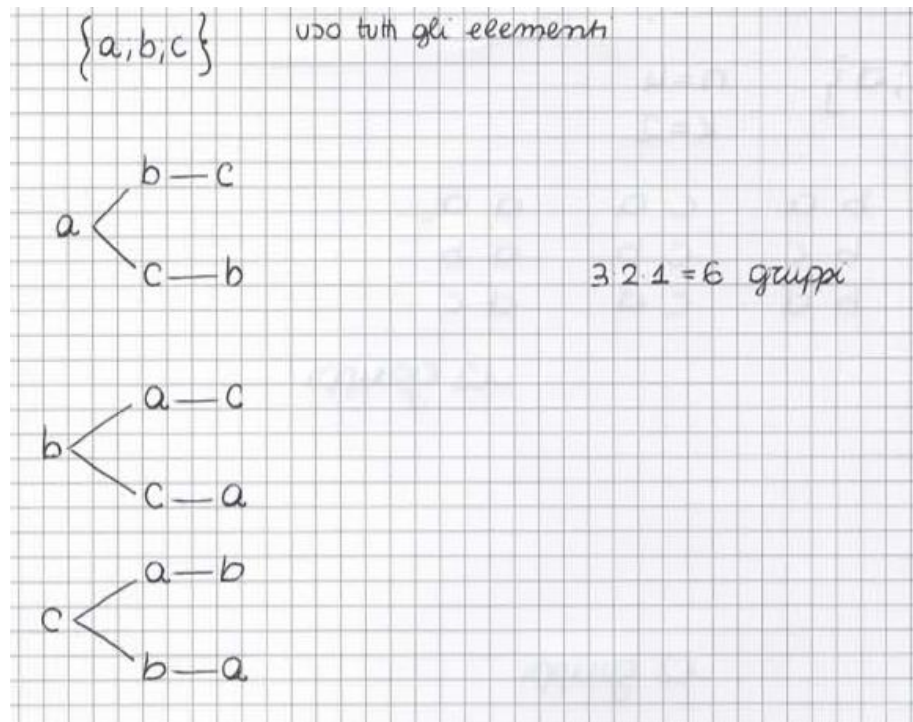 {a;b;c} uso tutti gli elementi
b — c
a
c — b
3 2 1 = 6 gruppi
a — c
b
c — a
a — b
c
b — a